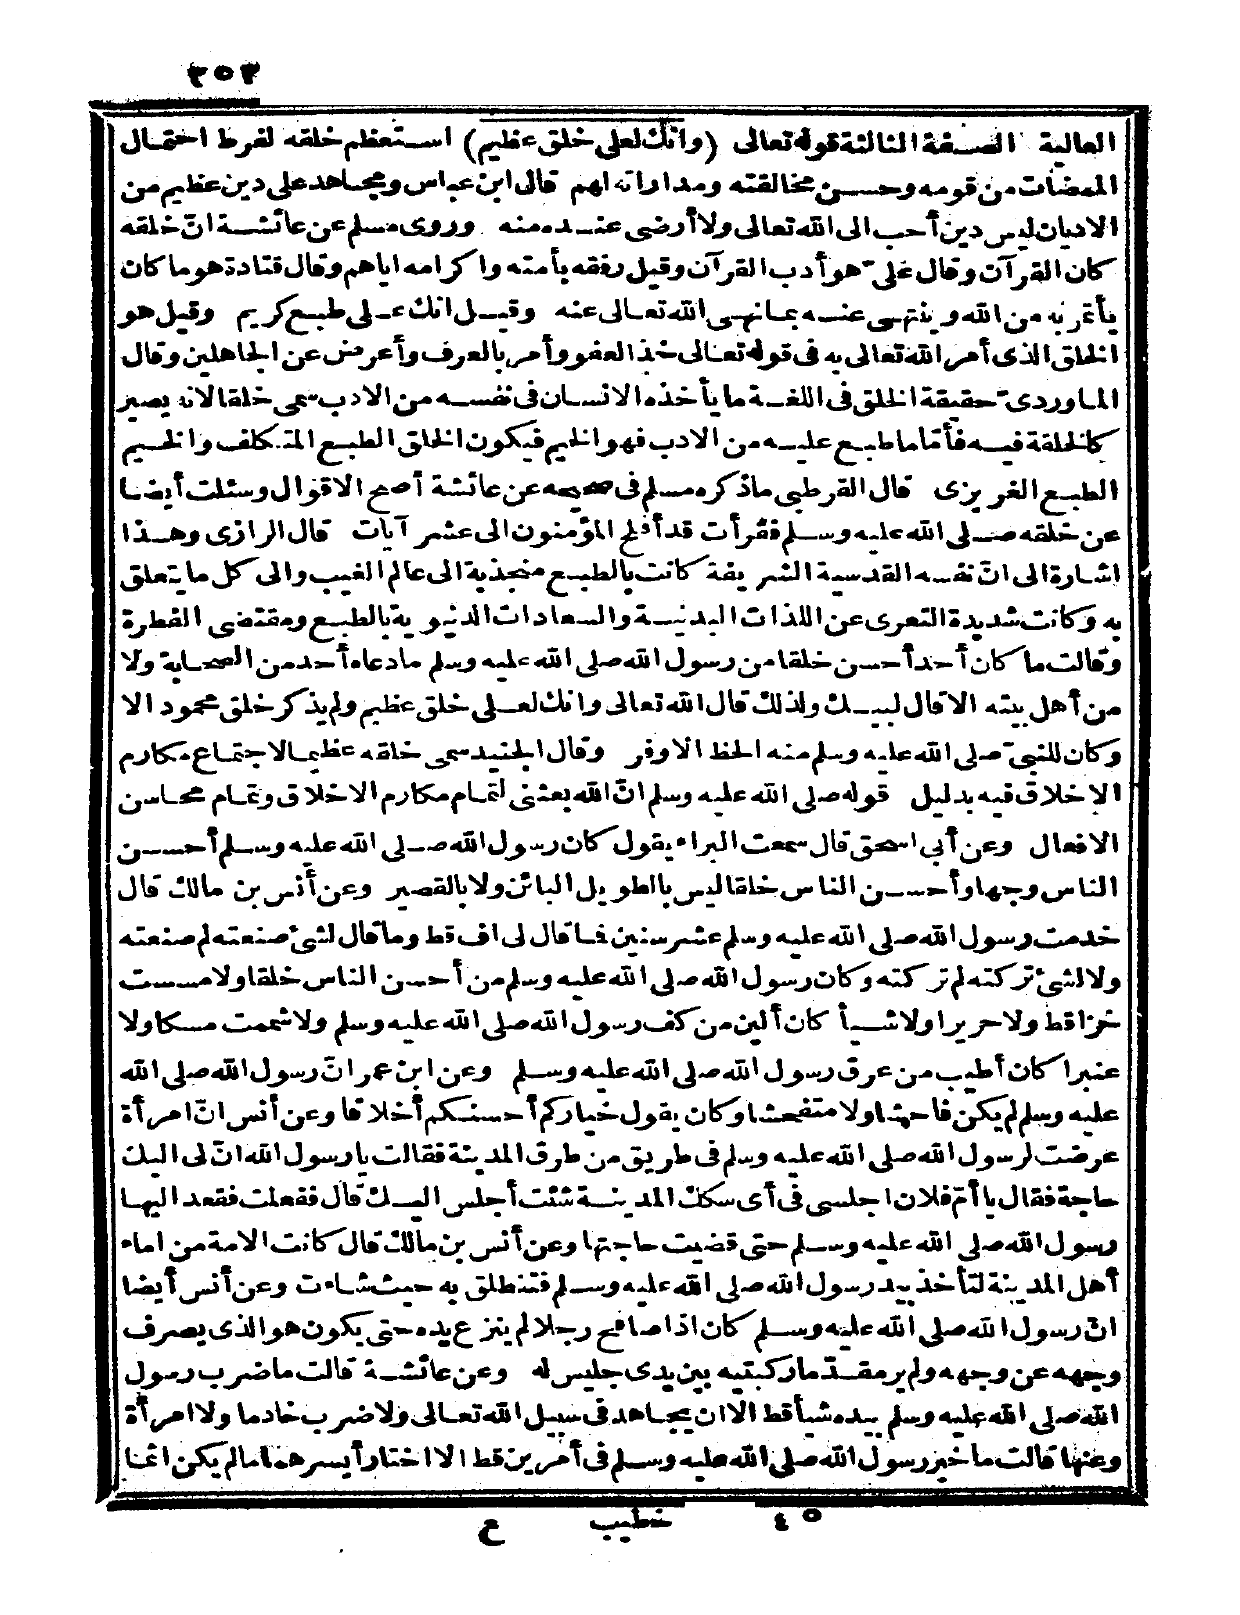 ٣٥٣
العالية الصفة الثالثة قوله تعالى (وانك لعلى خلق عظيم) استعظم خلقه لفرط احتمال
الممضات من قومه وحسن مخالقته ومداراته لهم قال ابن عباس ومجاهد على دين عظيم من
الاديان ليس دين أحب الى الله تعالى ولا أرضى عنده منه وروى مسلم عن عائشة انّ خلقه
كان القرآن وقال على هو أدب القرآن وقيل رفقه بأمته واكرامه اياهم وقال قتادة هو ما كان
يأتمر به من الله وينتهى عنه بما نهى الله تعالى عنه وقيل انك على طبع كريم وقيل هو
الخلق الذى أمر الله تعالى به فى قوله تعالى خذ العفو وأمر بالعرف وأعرض عن الجاهلين وقال
الماوردى حقيقة الخلق فى اللغة ما يأخذه الانسان فى نفسه من الادب سمى خلقا لانه يصير
كالخلقة فيه فأمّا ما طبع عليه من الادب فهو الخيم فيكون الخلق الطبع المتكلف والخيم
الطبع الغريزى قال القرطبى ما ذكره مسلم فى صحيحه عن عائشة أصح الاقوال وسئلت أيضا
عن خلقه صلى الله عليه وسلم فقرأت قد أفلح المؤمنون الى عشر آيات قال الرازى وهذا
اشارة الى انّ نفسه القدسية الشريفة كانت بالطبع منجذبة الى عالم الغيب والى كل ما يتعلق
به وكانت شديدة التعرى عن اللذات البدنية والسعادات الدنيوية بالطبع ومقتضى الفطرة
وقالت ما كان أحد أحسن خلقا من رسول الله صلى الله عليه وسلم ما دعاه أحد من الصحابة ولا
من أهل بيته الا قال لبيك ولذلك قال الله تعالى وانك لعلى خلق عظيم ولم يذكر خلق محمود الا
وكان للنبىّ صلى الله عليه وسلم منه الحظ الاوفر وقال الجنيد سمى خلقه عظيما لاجتماع مكارم
الاخلاق فيه بدليل قوله صلى الله عليه وسلم انّ الله بعثنى لتمام مكارم الاخلاق وتمام محاسن
الافعال وعن أبى اسحق قال سمعت البراء يقول كان رسول الله صلى الله عليه وسلم أحسن
الناس وجها وأحسن الناس خلقا ليس بالطويل البائن ولا بالقصير وعن أنس بن مالك قال
خدمت رسول الله صلى الله عليه وسلم عشر سنين فما قال لى اف قط وما قال لشئ صنعته لم صنعته
ولا لشئ تركته لم تركته وكان رسول الله صلى الله عليه وسلم من أحسن الناس خلقا ولا مسست
خزا قط ولا حريرا ولا شيأ كان ألين من كف رسول الله صلى الله عليه وسلم ولا شممت مسكا ولا
عنبرا كان أطيب من عرق رسول الله صلى الله عليه وسلم وعن ابن عمر انّ رسول الله صلى الله
عليه وسلم لم يكن فاحشا ولا متفحشا وكان يقول خياركم أحسنكم أخلاقا وعن أنس انّ امرأة
عرضت لرسول الله صلى الله عليه وسلم فى طريق من طرق المدينة فقالت يا رسول الله انّ لى اليك
حاجة فقال يا أمّ فلان اجلسى فى أى سكك المدينة شئت أجلس اليك قال ففعلت فقعد اليها
رسول الله صلى الله عليه وسلم حتى قضيت حاجتها وعن أنس بن مالك قال كانت الامة من اماء
أهل المدينة لتأخذ بيد رسول الله صلى الله عليه وسلم فتنطلق به حيث شاءت وعن أنس أيضا
انّ رسول الله صلى الله عليه وسلم كان اذا صافح رجلا لم ينزع يده حتى يكون هو الذى يصرف
وجهه عن وجهه ولم ير مقدّما ركبتيه بين يدى جليس له وعن عائشة قالت ما ضرب رسول
الله صلى الله عليه وسلم بيده شيأ قط الا ان يجاهد فى سبيل الله تعالى ولا ضرب خادما ولا امرأة
وعنها قالت ما خير رسول الله صلى الله عليه وسلم فى أمرين قط الا اختار أيسرهما ما لم يكن اثما
٤٥ خطيب ع